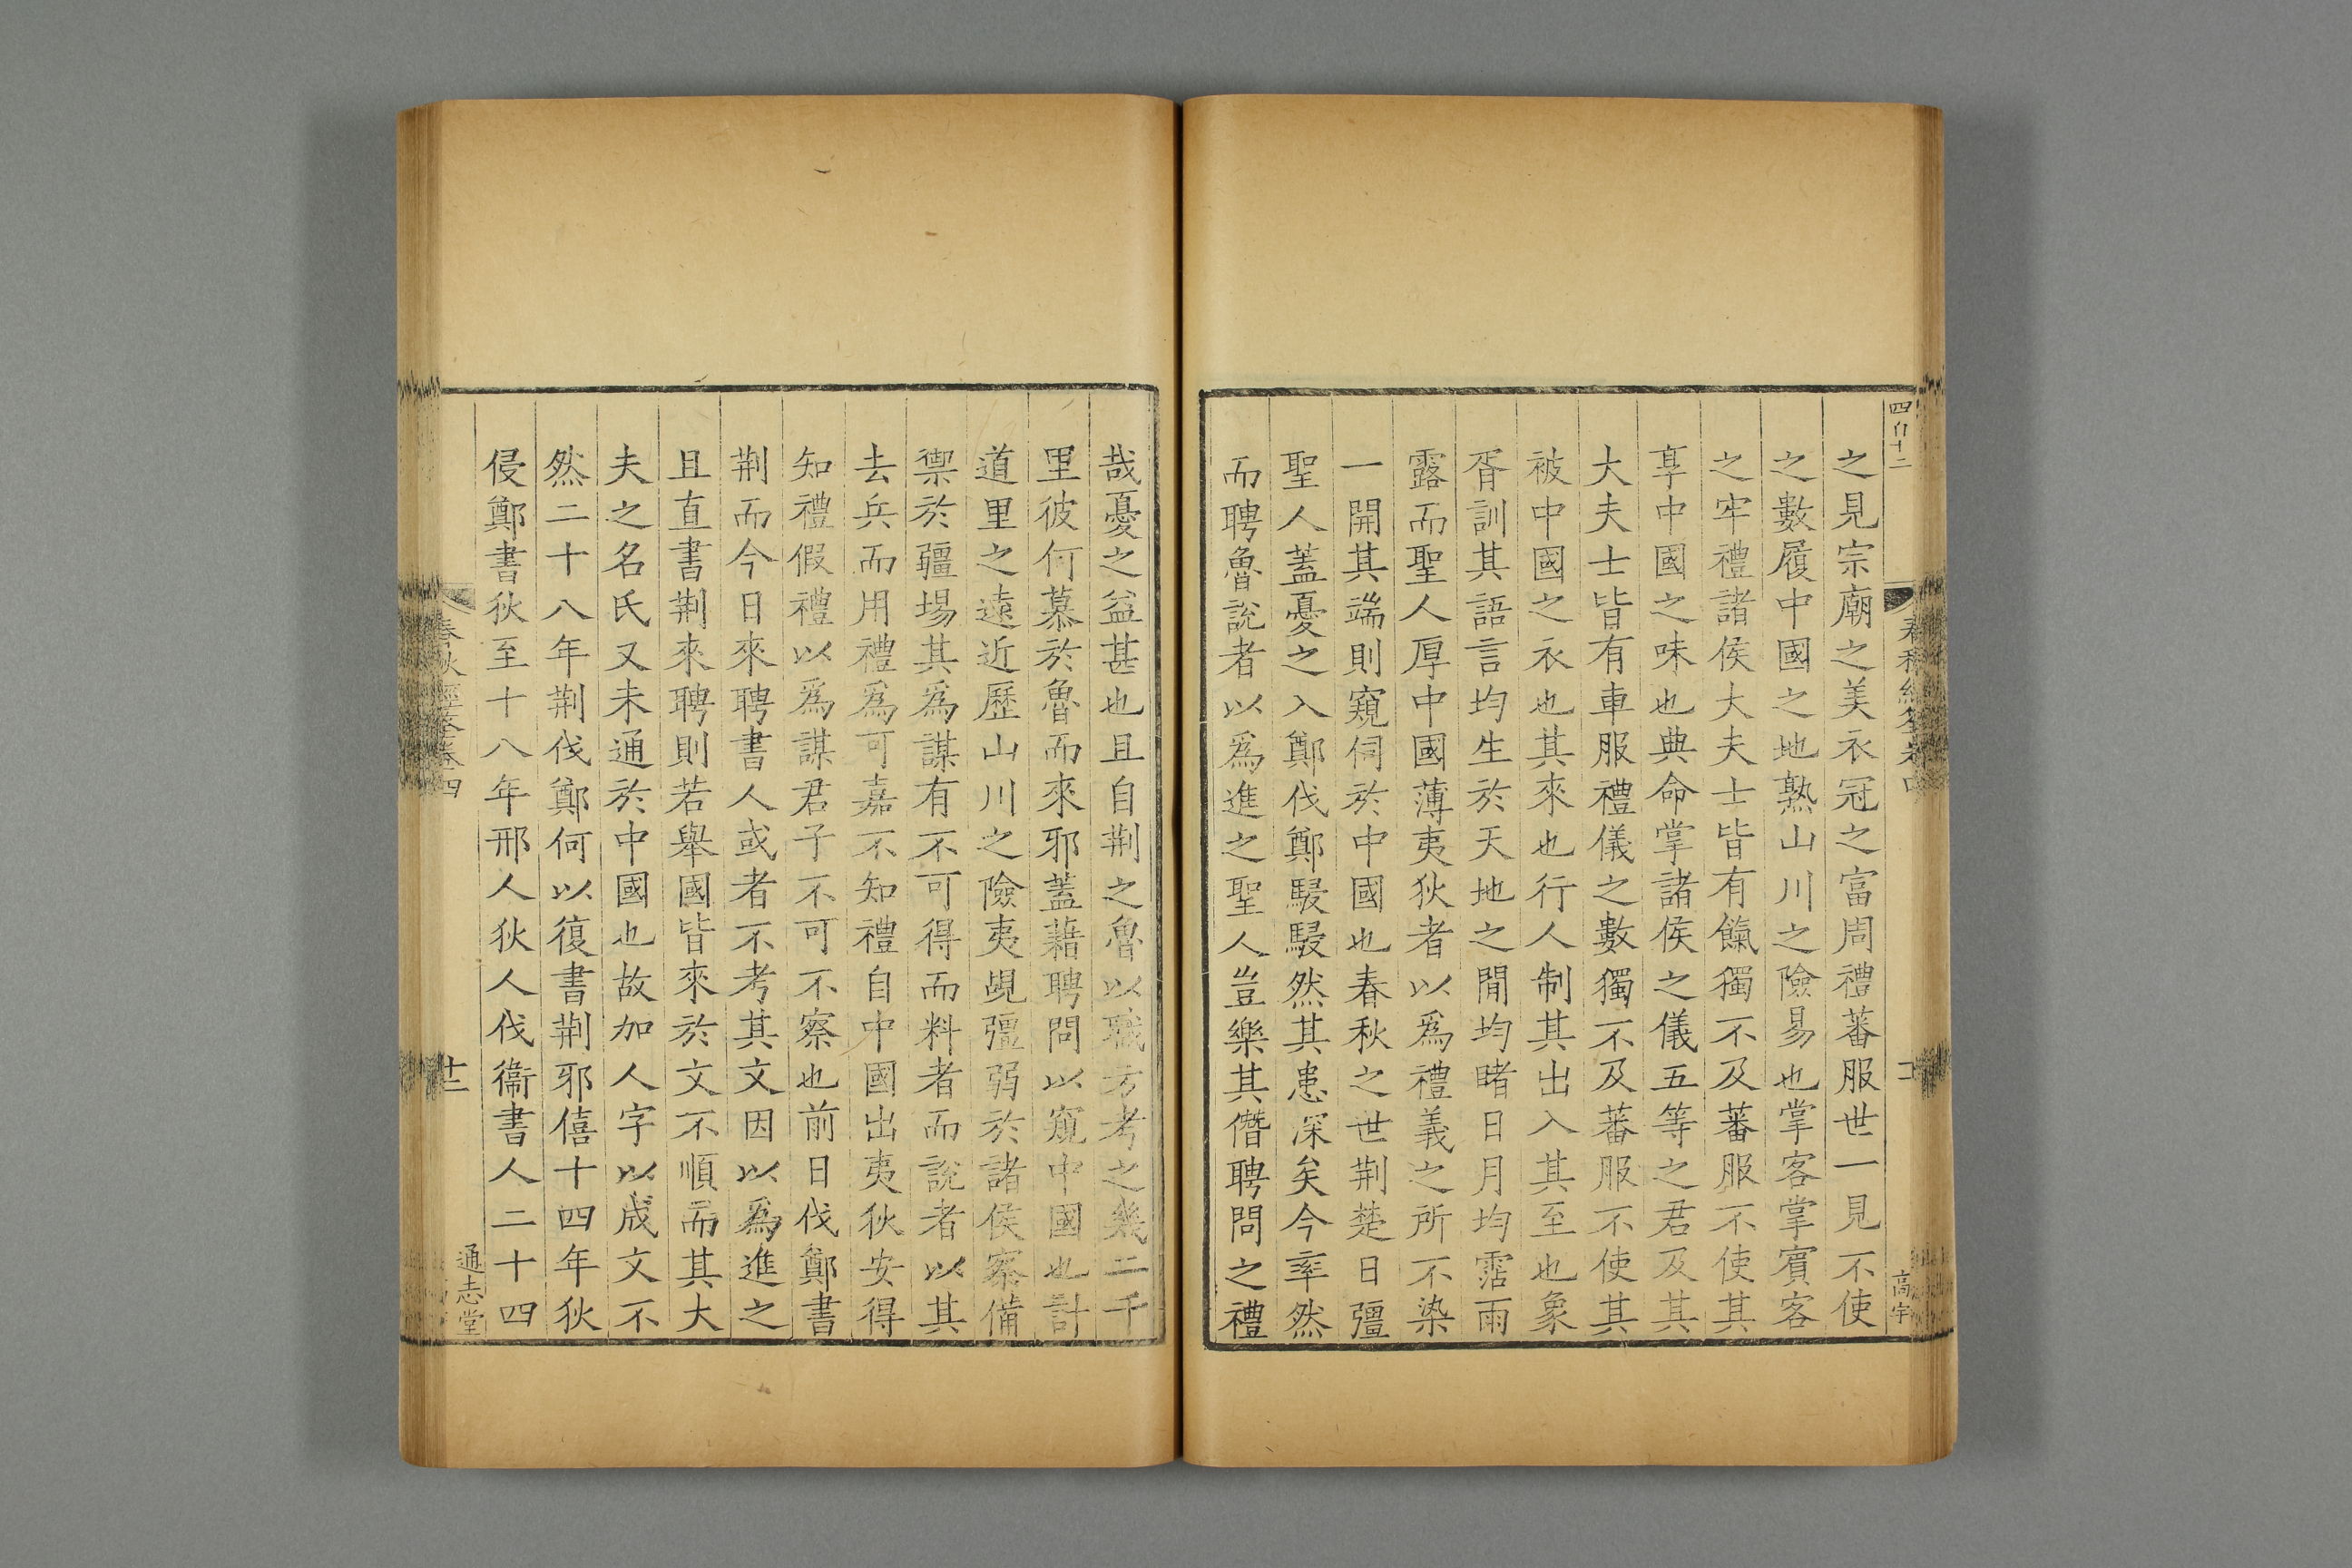 之見宗廟之美衣冠之富周禮蕃服世一見不使
之數履中國之地熟山川之險易也掌客掌賓客
之牢禮諸侯大夫士皆有餼獨不及蕃服不使其
享中國之味也典命掌諸侯之儀五等之君及其
大夫士皆有車服禮儀之數獨不及蕃服不使其
被中國之衣也其來也行人制其出入其至也象
胥訓其語言均生於天地之間均睹日月均霑雨
露而聖人厚中國薄夷狄者以爲禮義之所不染
一開其端則窺伺於中國也春秋之世荆楚日彊
聖人蓋憂之入鄭伐鄭駸駸然其患深矣今率然
而聘魯說者以爲進之聖人豈樂其僭聘問之禮
哉憂之益甚也且自荆之魯以職方考之幾二千
里彼何慕於魯而來邪蓋藉聘問以窺中國也計
道里之遠近歷山川之險夷覘彊弱於諸侯察備
禦於疆場其爲謀有不可得而料者而說者以其
去兵而用禮爲可嘉不知禮自中國出夷狄安得
知禮假禮以爲謀君子不可不察也前日伐鄭書
荆而今日來聘書人或者不考其文因以爲進之
且直書荆來聘則若舉國皆來於文不順而其大
夫之名氏又未通於中國也故加人字以成文不
然二十八年荆伐鄭何以復書荆邪僖十四年狄
侵鄭書狄至十八年邢人狄人伐衞書人二十四
春秋經筌卷四
十二
通志堂